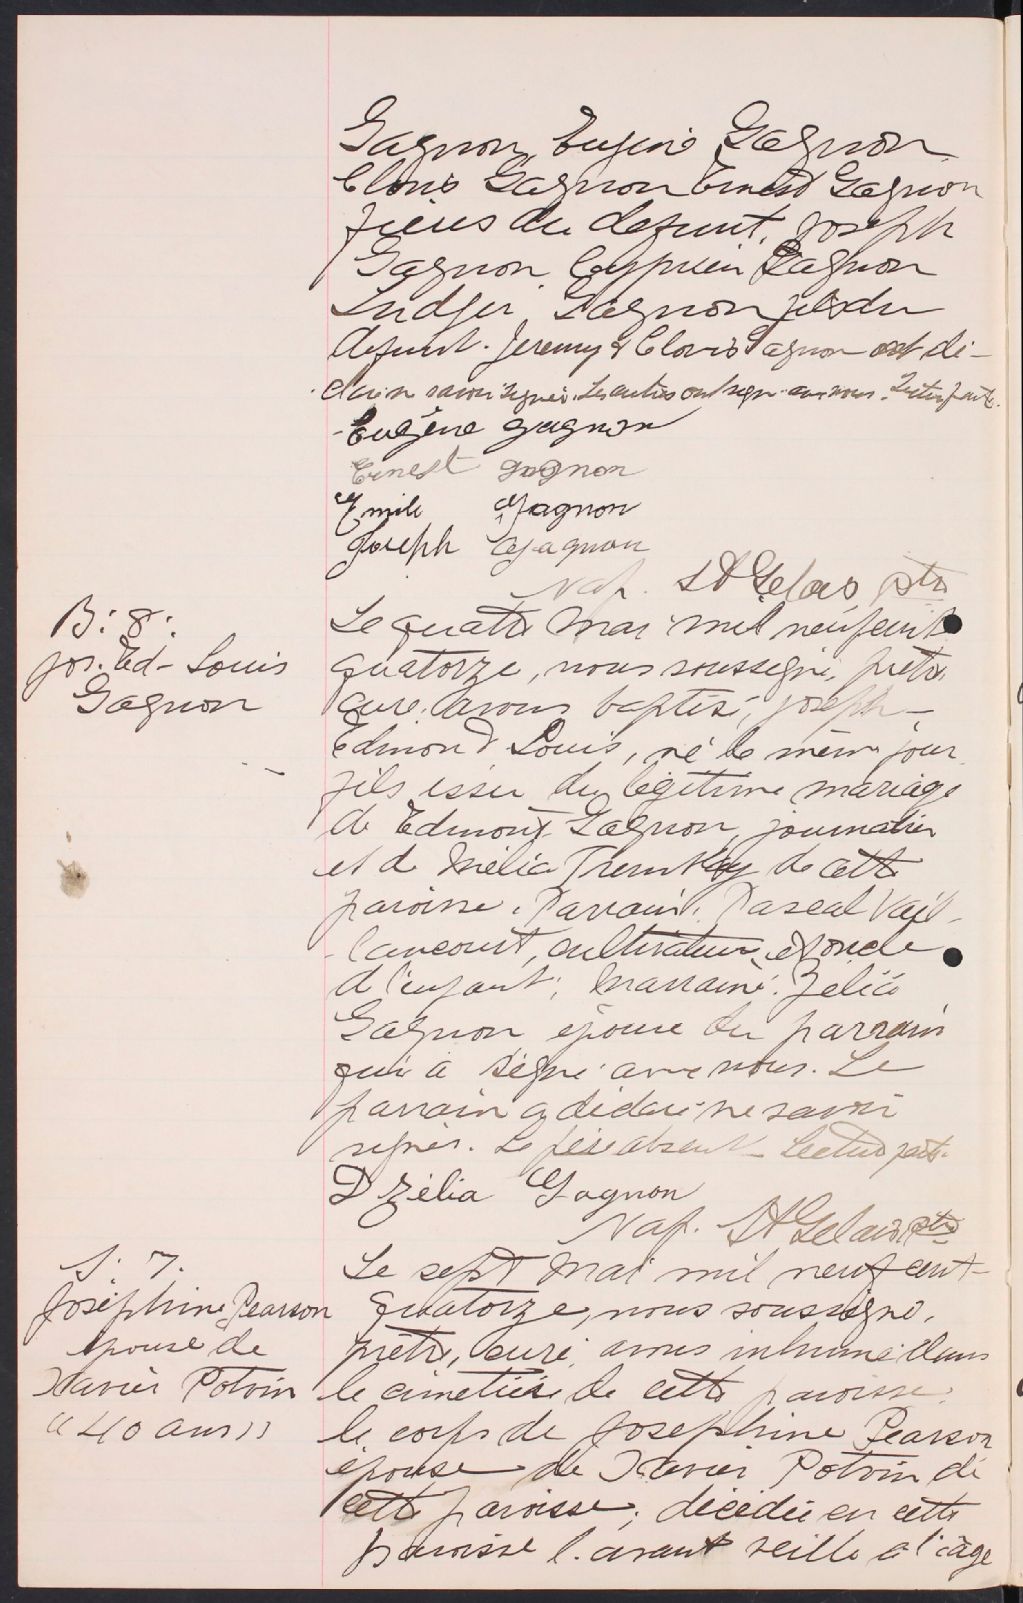 Gagnon, Eugène Gagnon
Clovis Gagnon Ernest Gagnon
frères du defunt, Joseph
Gagnon, Cyprien Gagnon
Ludger Gagnon fils du
defunt. Jeremy & Clovis Gagnon ont dé-
claré ne savoir signer. Les autres ont signé avec nous. Lecture faite.
Eugène gagnon
Ernest gagnon
Emile Gagnon
Joseph Gagnon
Nap. St Gelais ptre
B: 8:
Jos. Ed- Louis
Gagnon
Le quatre Mai mil neuf cent
quatorze, nous soussigné, prêtre
curé, avons baptisé, Joseph-
Edmond Louis, né le même jour
fils issu du légitime mariage
de Edmont Gagnon, journalier
et de Mélia Tremblay de cette
paroisse. Parrain: Pascal Vail-
lancourt, cultivateur, et oncle
d l'enfant; Marraine: Zélia
Gagnon épouse du parrain
qui a signé avec nous. Le
parrain a déclaré ne savoir
signer. Le père absent - Lecture faite.
D Zélia Gagnon
Nap. St Gelais ptre
S. 7.
Joséphine Pearson
épouse de
Xavier Potvin
"40 ans"
Le sept Mai mil neuf cent-
quatorze, nous soussigné,
prêtre, curé, avons inhumé dans
le cimetière de cette paroisse
le corps de Josephine Pearson
épouse de Xavier Potvin de
cette paroisse, décédée en cette
paroisse l'avant veille à l'âge